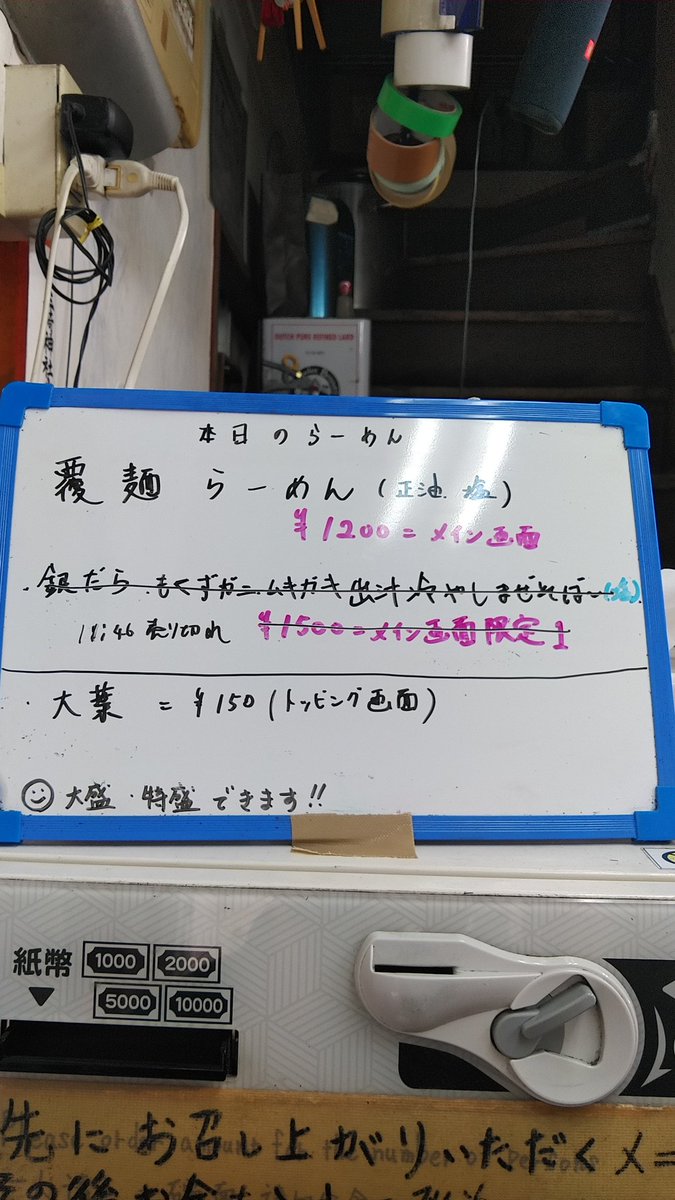 DUTCH PURE REFINED LARD
本日のらーめん
覆麺 らーめん (正油 塩)
¥1200=メイン画面
・銀だら もくずガニ ムキガキ 出汁 冷やしまぜそば (塩)
11:46 売り切れ ¥1500=メイン画面限定1
・大葉 = ¥150 (トッピング画面)
大盛・特盛できます!!
紙幣 1000 2000
5000 10000
先にお召し上がりいただくメ